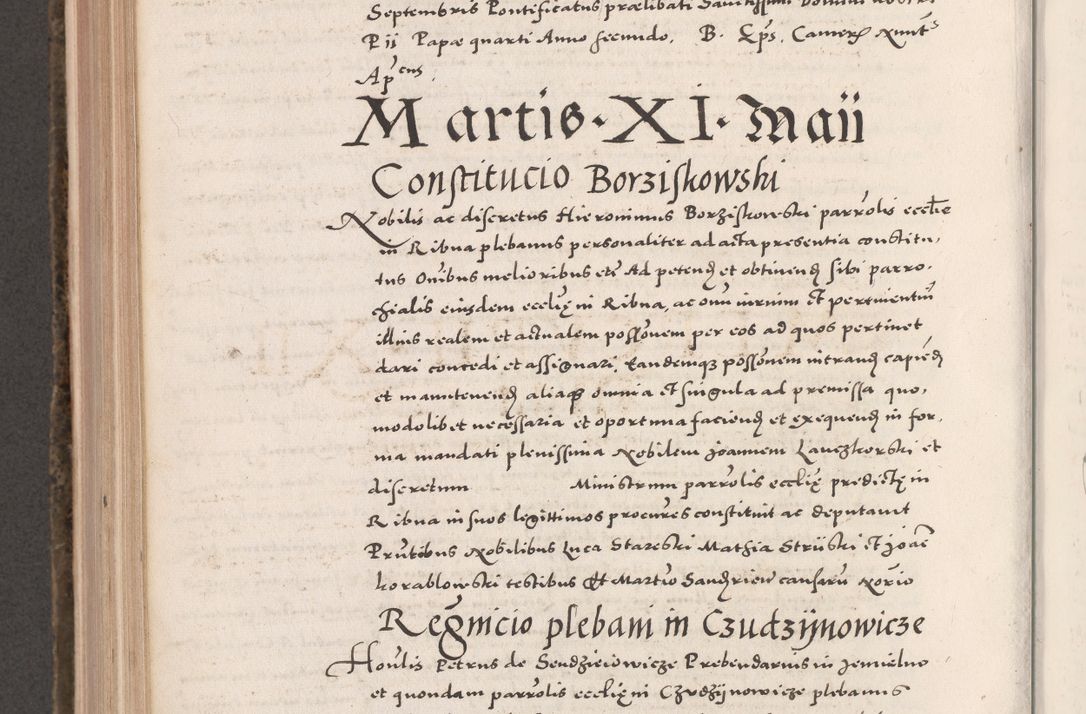 Septembris Pontificatus prælibati Sanctissimi Domini nostri
Pii Papæ quarti Anno secundo. B. Ep̃s. Camerẽ Nunt9
Ap̃cus.
Martis · XI · Maii
Constitucio Borziskowski
Nobilis ac discretus Hieronimus Borziskowski parrolis eccl̃ie
in Ribna plebanus personaliter ad acta presentia constitu,
tus Om̃ibus melioribus etc̃ Ad petend et obtinend sibi parro,
chialis eiusdem eccliẽ in Ribna, ac omnium iurium et pertinentiũ
illius realem et actualem poss̃onem per eos ad quos pertinet
dari concedi et assignari, tandemq3 poss̃onem intrand capiẽd
et manutenend aliaq3 omnia et singula ad premissa quo,
modolibet necessaria et oportuna faciend et exequend in for,
ma mandati plenissima Nobilem Joannem Lanczkorski et
discretum Ministrum parrolis eccliẽ predictẽ in
Ribna in suos legittimos procures constituit ac deputavit
Prñtibus Nobilibus Luca Stareski Mathia Striiski et Joañe
korablowski testibus Et Martino Sandriew causarũ Norio
Resignicio plebani in Czudzijnowicze
Honlis Petrus de Sendzieiowicze Prebendarius in Jemielno
et quondam parrolis eccliẽ in Czudzijnowicze plebanus